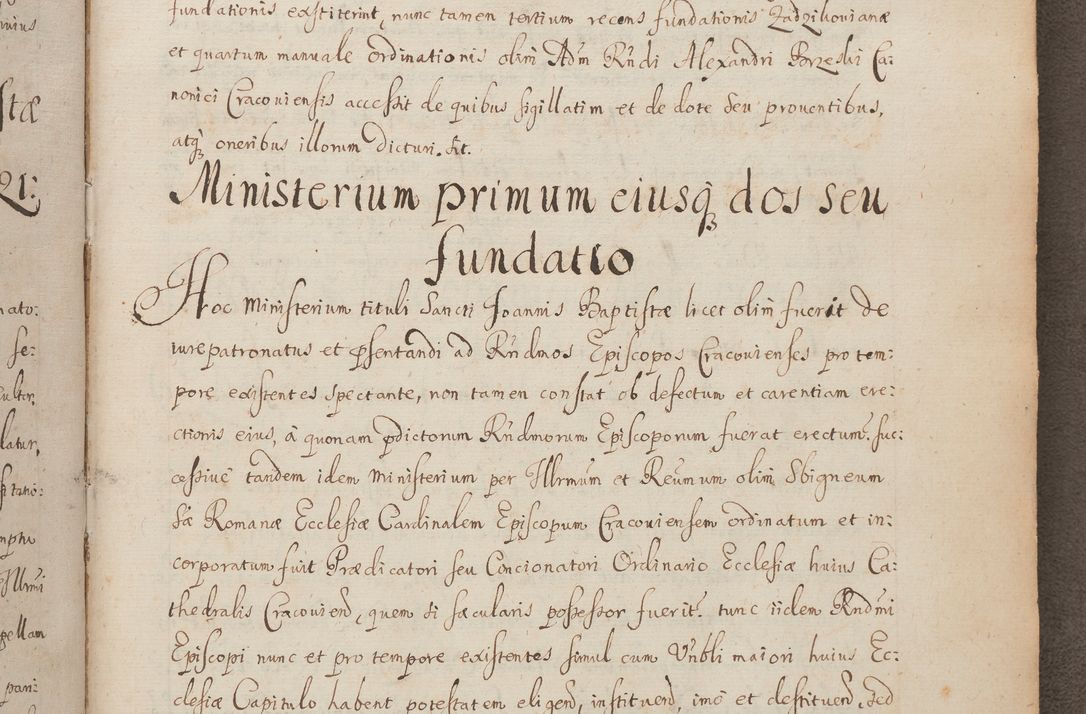 fundationis extiterint, nunc tamen tertium recens fundationis Zadzikovianæ
et quartum manuale ordinationis olim Adm Rndi Alexandri Brzeski Ca:
nonici Cracoviensis accessit de quibus sigillatim et de dote seu proventibus,
atq̃ oneribus illorum dicturi. sit.
Ministerium primum eiusq̃ dos seu
fundatio
Hoc Ministerium tituli Sancti Ioannis Baptistæ licet olim fuerit de
iurepatronatus et p̃sentandi ad Rndmos Episcopos Cracovienses pro tem:
pore existentes spectante, non tamen constat ob defectum et carentiam ere:
ctionis eius, à quonam p̃dictorum Rndmorum Episcoporum fuerat erectum. suc:
cessivè tandem idem Ministerium per Illrmum et Reumum olim Sbigneum
Sæ Romanæ Ecclesiæ Cardinalem Episcopum Cracoviensem ordinatum et in:
corporatum fuit Prædicatori seu Concionatori Ordinario Ecclesiæ huius Ca:
thedralis Cracovień, quem si sæcularis possessor fuerit. tunc iidem Rndmi
Episcopi nunc et pro tempore existentes simul cum Vnbli maiori huius Ec:
clesiæ Capitulo habent potestatem eligend, instituend, imò et destituend, sed
nius
stæ
21:
nato:
se:
latur,
sitatio:
mphu
Illrmi
pellam
pari: